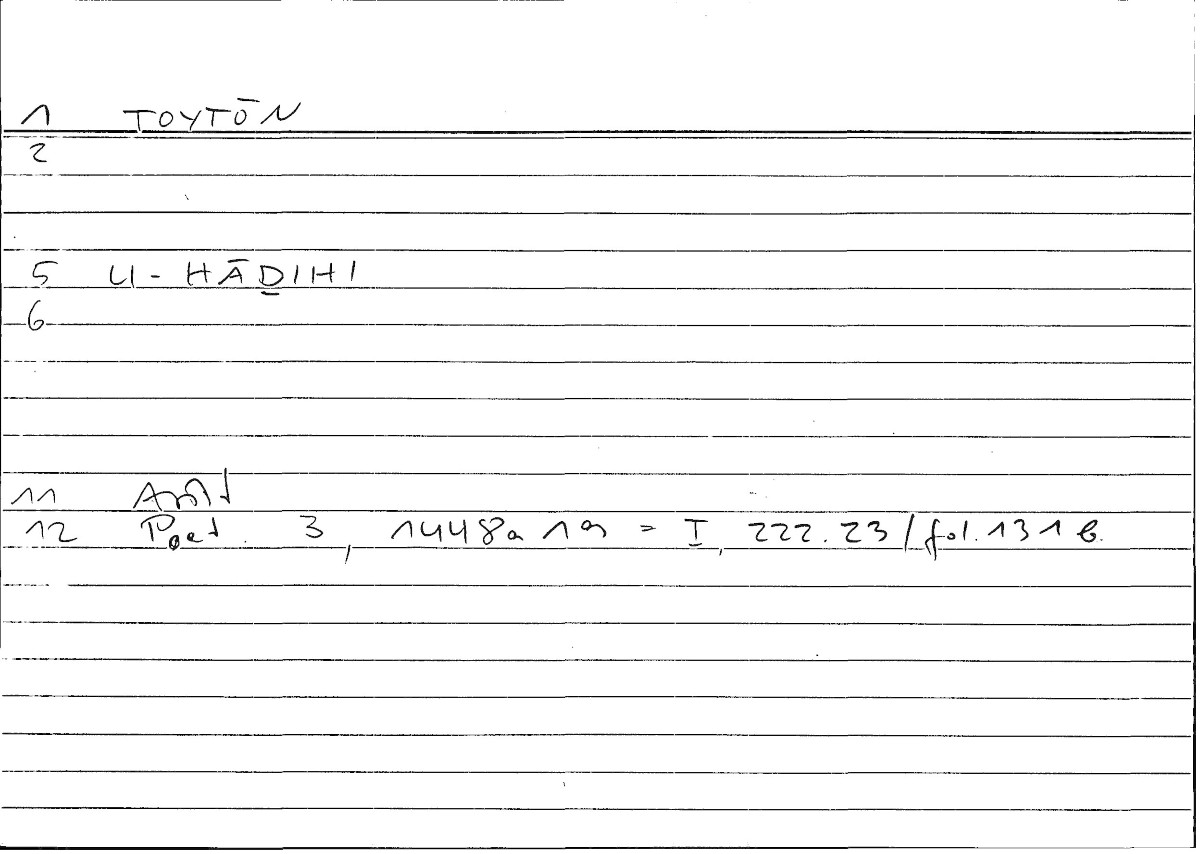 1 TOYTŌN
2
5 LI-HĀḎIHI
6
11 Arist
12 Poet. 3, 1448a 19 = I, 222.23/fol.131b.